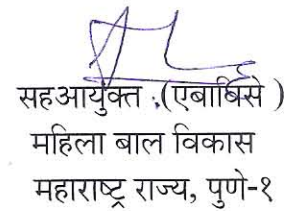 सहआयुक्त ,(एबाबिसे )
महिला बाल विकास
महाराष्ट्र राज्य, पुणे-१